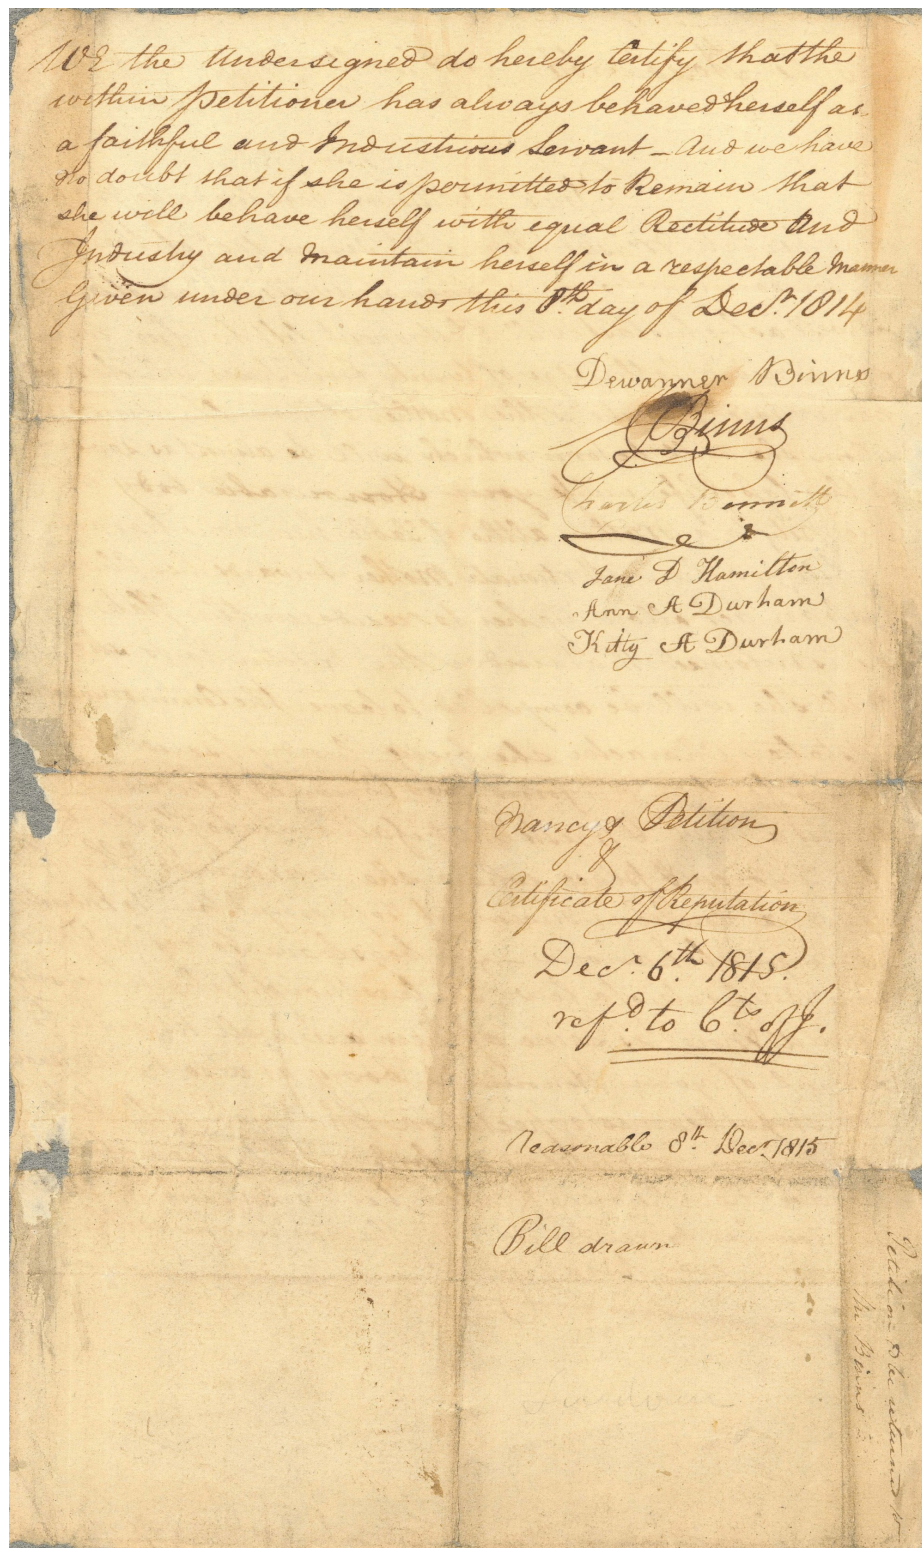 WE the Undersigned do hereby Certify that the
within Petitioner has always behaved herself as
a faithful and Industrious Servant - And we have
no doubt that if she is permitted to Remain that
she will behave herself with equal Rectitude And
Industry and Maintain herself in a respectable Manner
Given under our hands this 8th. day of Decr. 1814
Dewanner Binns
Binns
Charles Bennett
Jane D Hamilton
Ann A Durham
Kitty A Durham
Nancy's Petition
&
Certificate of Reputation
Decr. 6th. 1815.
refd. to Cts. of J.
reasonable 8th. Decr. 1815
Bill drawn
Petition to be returned to
Mr Binns